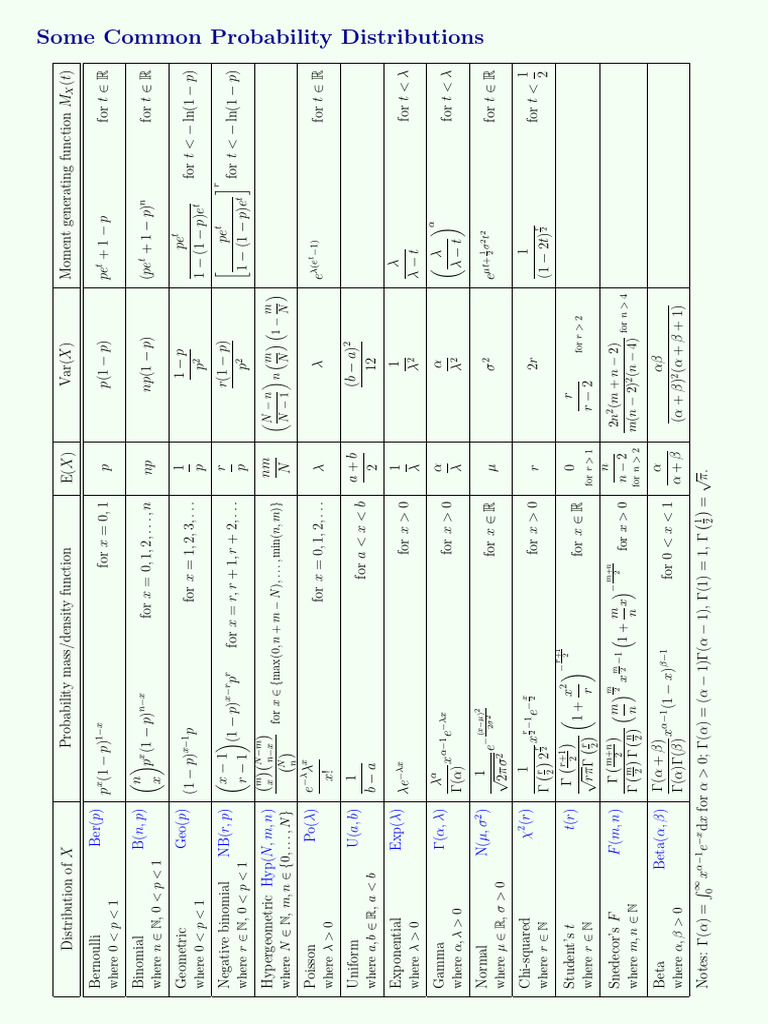 Some Common Probability Distributions
Distribution of X | Probability mass/density function | E(X) | Var(X) | Moment generating function M_X(t)
Bernoulli Ber(p) where 0 < p < 1 | p^x(1 − p)^{1−x} for x = 0, 1 | p | p(1 − p) | pe^t + 1 − p for t ∈ ℝ
Binomial B(n, p) where n ∈ ℕ, 0 < p < 1 | \binom{n}{x} p^x(1 − p)^{n−x} for x = 0, 1, 2, …, n | np | np(1 − p) | (pe^t + 1 − p)^n for t ∈ ℝ
Geometric Geo(p) where 0 < p < 1 | (1 − p)^{x−1}p for x = 1, 2, 3, … | \frac{1}{p} | \frac{1 − p}{p^2} | \frac{pe^t}{1 − (1 − p)e^t} for t < − ln(1 − p)
Negative binomial NB(r, p) where r ∈ ℕ, 0 < p < 1 | \binom{x − 1}{r − 1} (1 − p)^{x−r}p^r for x = r, r + 1, r + 2, … | \frac{r}{p} | \frac{r(1 − p)}{p^2} | \left[\frac{pe^t}{1 − (1 − p)e^t}\right]^r for t < − ln(1 − p)
Hypergeometric Hyp(N, m, n) where N ∈ ℕ, m, n ∈ {0, …, N} | \frac{\binom{m}{x}\binom{N−m}{n−x}}{\binom{N}{n}} for x ∈ {max(0, n + m − N), …, min(n, m)} | \frac{nm}{N} | \left(\frac{N − n}{N − 1}\right) n \left(\frac{m}{N}\right) \left(1 − \frac{m}{N}\right)
Poisson Po(λ) where λ > 0 | \frac{e^{−λ}λ^x}{x!} for x = 0, 1, 2, … | λ | λ | e^{λ(e^t−1)} for t ∈ ℝ
Uniform U(a, b) where a, b ∈ ℝ, a < b | \frac{1}{b − a} for a < x < b | \frac{a + b}{2} | \frac{(b − a)^2}{12}
Exponential Exp(λ) where λ > 0 | λe^{−λx} for x > 0 | \frac{1}{λ} | \frac{1}{λ^2} | \frac{λ}{λ − t} for t < λ
Gamma Γ(α, λ) where α, λ > 0 | \frac{λ^α}{Γ(α)} x^{α−1}e^{−λx} for x > 0 | \frac{α}{λ} | \frac{α}{λ^2} | \left(\frac{λ}{λ − t}\right)^α for t < λ
Normal N(μ, σ^2) where μ ∈ ℝ, σ > 0 | \frac{1}{\sqrt{2πσ^2}} e^{−\frac{(x−μ)^2}{2σ^2}} for x ∈ ℝ | μ | σ^2 | e^{μt+\frac{1}{2}σ^2t^2} for t ∈ ℝ
Chi-squared χ^2(r) where r ∈ ℕ | \frac{1}{Γ(\frac{r}{2}) 2^{\frac{r}{2}}} x^{\frac{r}{2}−1}e^{−\frac{x}{2}} for x > 0 | r | 2r | \frac{1}{(1 − 2t)^{\frac{r}{2}}} for t < \frac{1}{2}
Student's t t(r) where r ∈ ℕ | \frac{Γ(\frac{r+1}{2})}{\sqrt{rπ}Γ(\frac{r}{2})} \left(1 + \frac{x^2}{r}\right)^{−\frac{r+1}{2}} for x ∈ ℝ | 0 for r > 1 | \frac{r}{r − 2} for r > 2
Snedecor's F F(m, n) where m, n ∈ ℕ | \frac{Γ(\frac{m+n}{2})}{Γ(\frac{m}{2}) Γ(\frac{n}{2})} \left(\frac{m}{n}\right)^{\frac{m}{2}} x^{\frac{m}{2}−1} \left(1 + \frac{m}{n}x\right)^{−\frac{m+n}{2}} for x > 0 | \frac{n}{n − 2} for n > 2 | \frac{2n^2(m + n − 2)}{m(n − 2)^2(n − 4)} for n > 4
Beta Beta(α, β) where α, β > 0 | \frac{Γ(α + β)}{Γ(α)Γ(β)} x^{α−1}(1 − x)^{β−1} for 0 < x < 1 | \frac{α}{α + β} | \frac{αβ}{(α + β)^2(α + β + 1)}
Notes: Γ(α) = ∫_0^∞ x^{α−1}e^{−x}dx for α > 0; Γ(α) = (α − 1)Γ(α − 1), Γ(1) = 1, Γ(\frac{1}{2}) = √π.